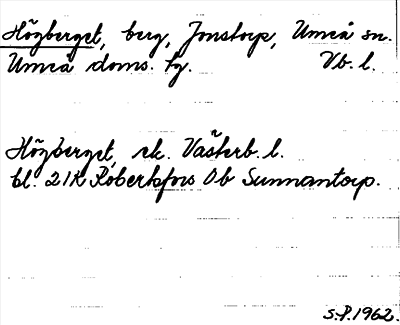 Högberget, berg, Jonstorp, Umeå sn.
Umeå doms. tg. Vb. l.
Högberget, ek. Västerb. l.
bl. 21K Robertsfors 0b Sunnantorp.
S.P. 1962.